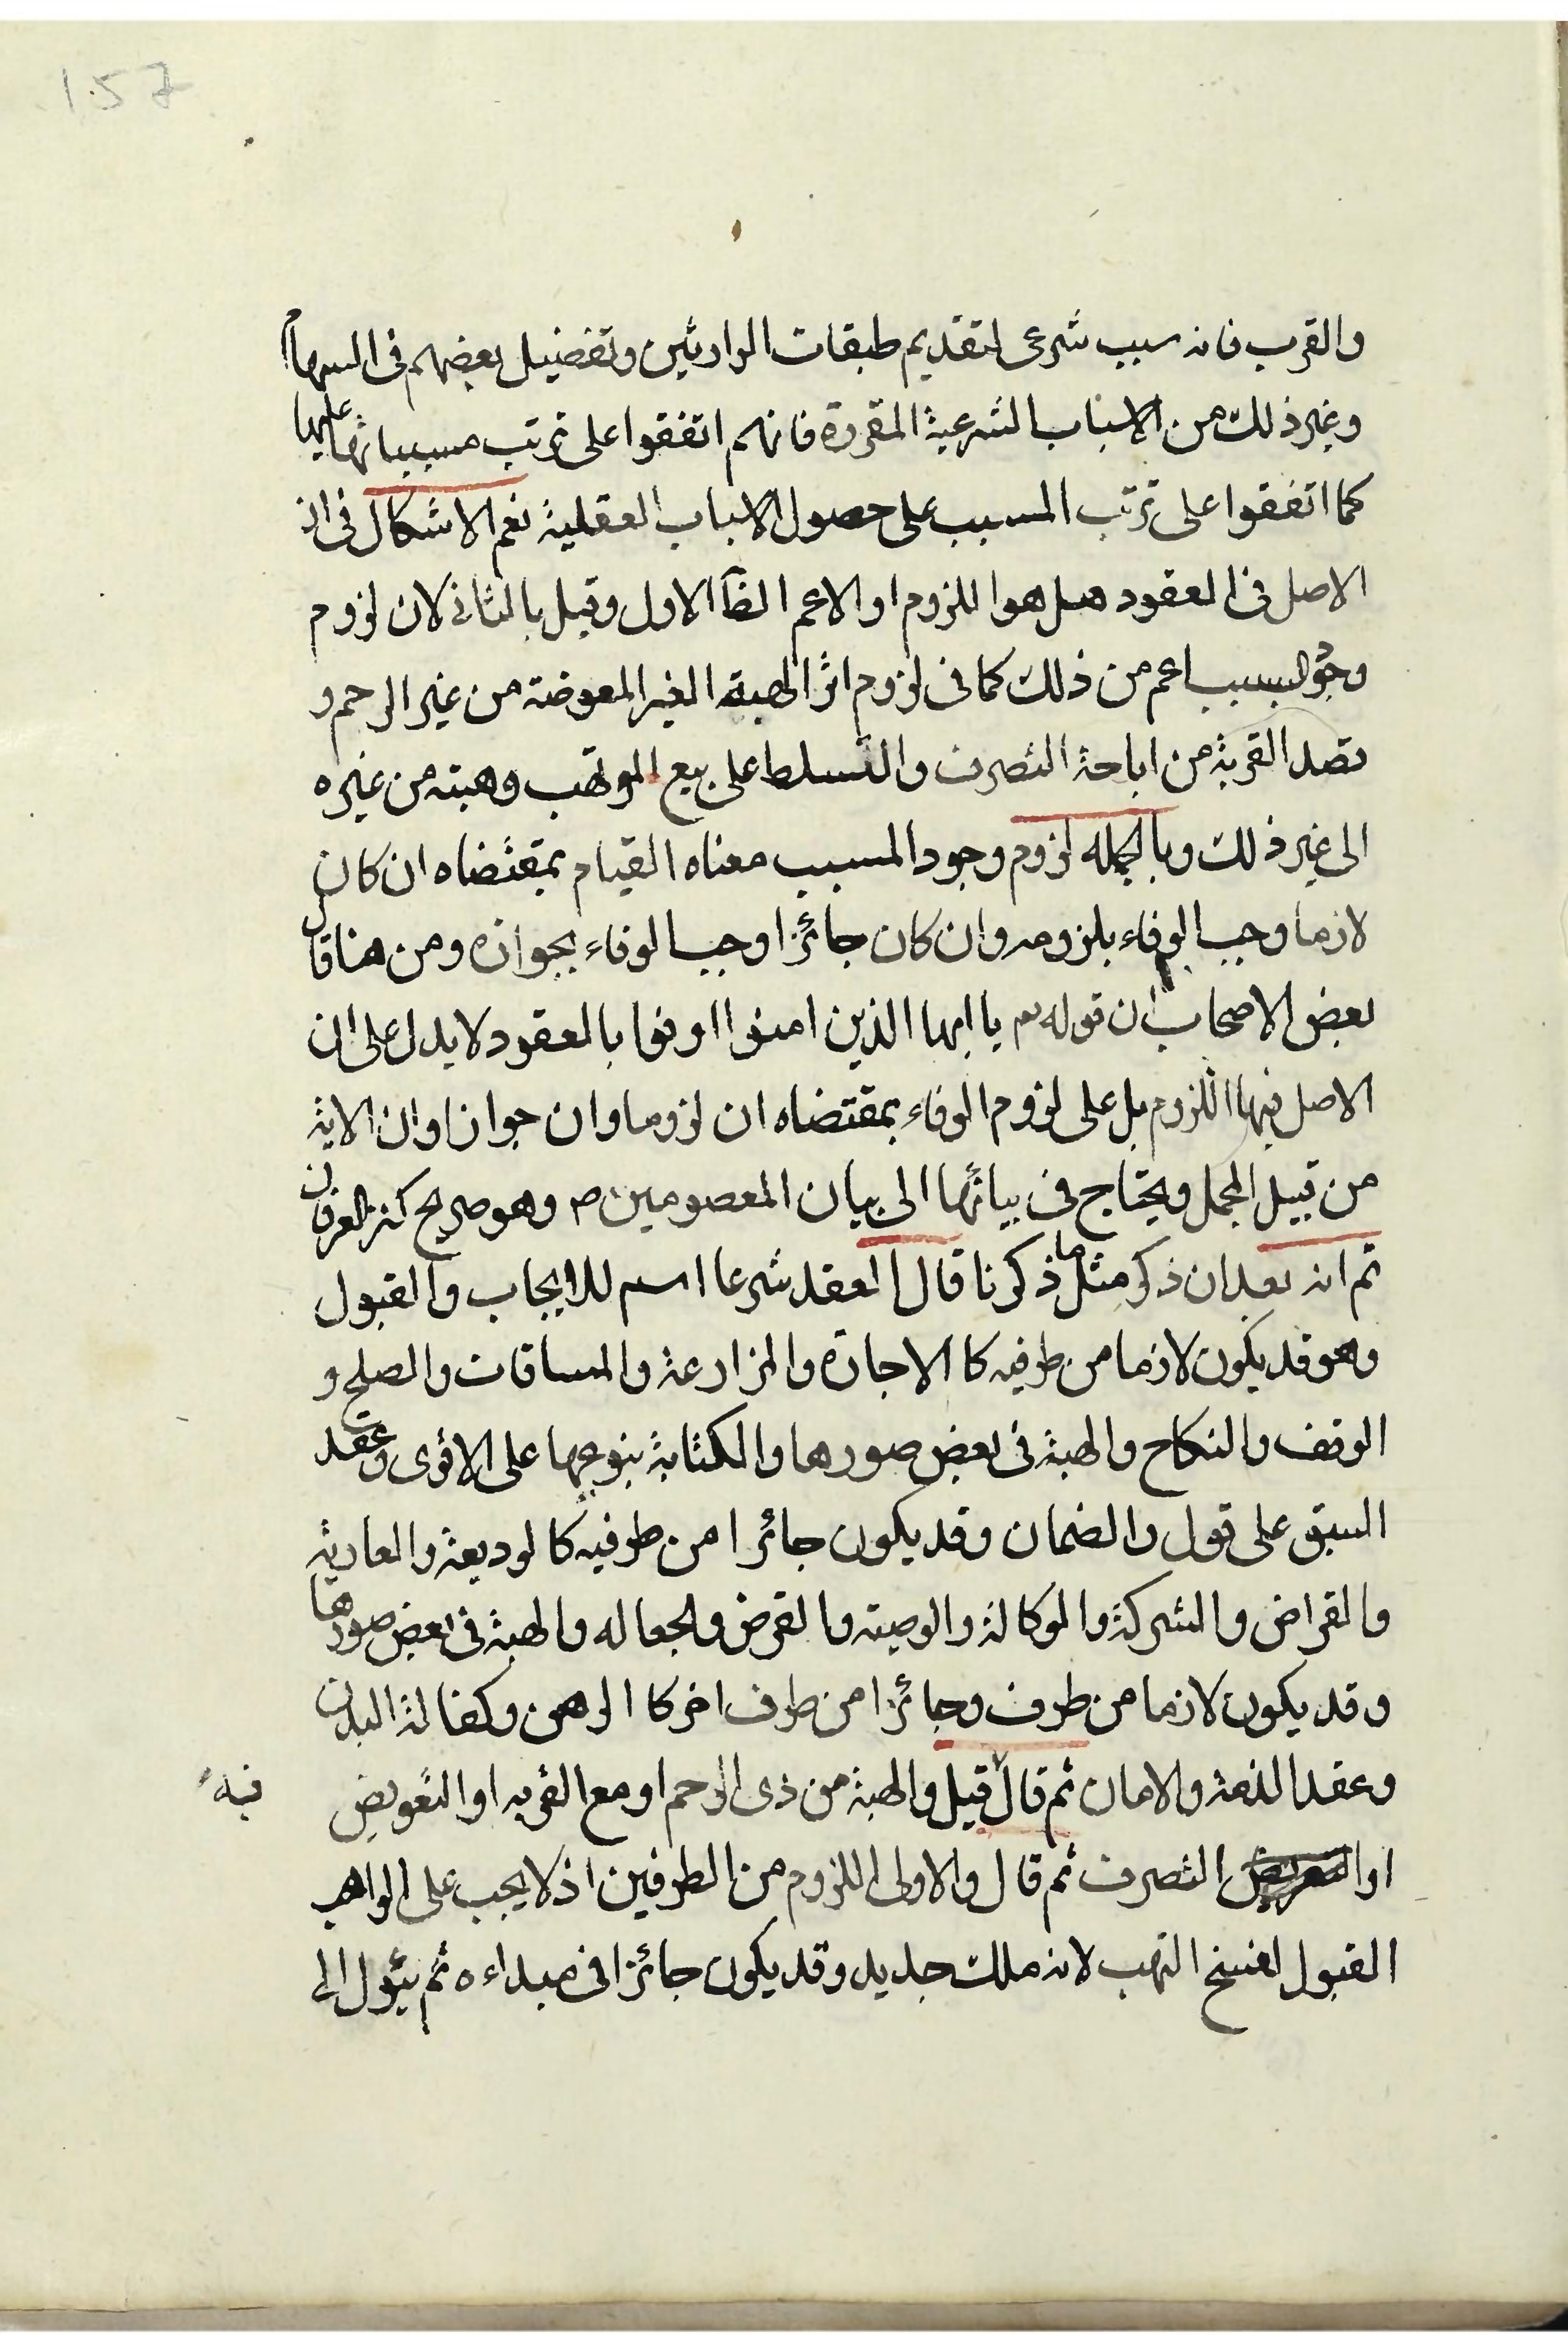 157
والقرب فانه سبب شرعى لتقديم طبقات الوارثين وتفضيل بعضهم فى السهام
وغير ذلك من الاسباب الشرعية المقررة فانهم اتفقوا على ترتب مسبباتها عليها
كما اتفقوا على ترتب المسبب على حصول الاسباب العقلية نعم الاشكال فى ان
الاصل فى العقود هل هو اللزوم او الاعم الظآ الاول وقيل بالثانى لان لزوم
وجود السبب اعم من ذلك كما فى لزوم اثر الهبة الغير المعوضة من غير الرحم و
قصد القربة من اباحة التصرف والتسلط على بيع الموتهب وهبته من غيره
الى غير ذلك وبالجمله لزوم وجود المسبب معناه القيام بمقتضاه ان كان
لازما وجب الوفاء بلزومه وان كان جائزا وجب الوفاء بجوازه ومن هنا قال
بعض الاصحاب ان قوله تع يا ايها الذين امنوا اوفوا بالعقود لا يدل على ان
الاصل فيها اللزوم بل على لزوم الوفاء بمقتضاه ان لزوما وان جوازا وان الاية
من قبيل المجمل ويحتاج فى بيانها الى بيان المعصومين ص وهو صريح كنز العرفان
ثم انه بعد ان ذكر مثل ما ذكرنا قال العقد شرعا اسم للايجاب والقبول
وهو قد يكون لازما من طرفيه كا الاجارة والمزارعة والمساقات والصلح و
الوقف والنكاح والهبة فى بعض صورها والكتابة بنوعيها على الاقوى وعقد
السبق على قول والضمان وقد يكون جائزا من طرفيه كالوديعة والعارية
والقراض والشركة والوكالة والوصية والقرض والجعاله والهبة فى بعض صورها
وقد يكون لازما من طرف وجائزا من طرف اخر كا الرهن وكفالة البدن
وعقد الذمة والامان ثم قال قيل والهبة من ذى الرحم او مع القربه او التعويض
فيه
او التصرف ثم قال والاولى اللزوم من الطرفين اذ لا يجب على الواهب
القبول لفسخ التهب لانه ملك جديد وقد يكون جائزا فى مبداءه ثم يئول الى